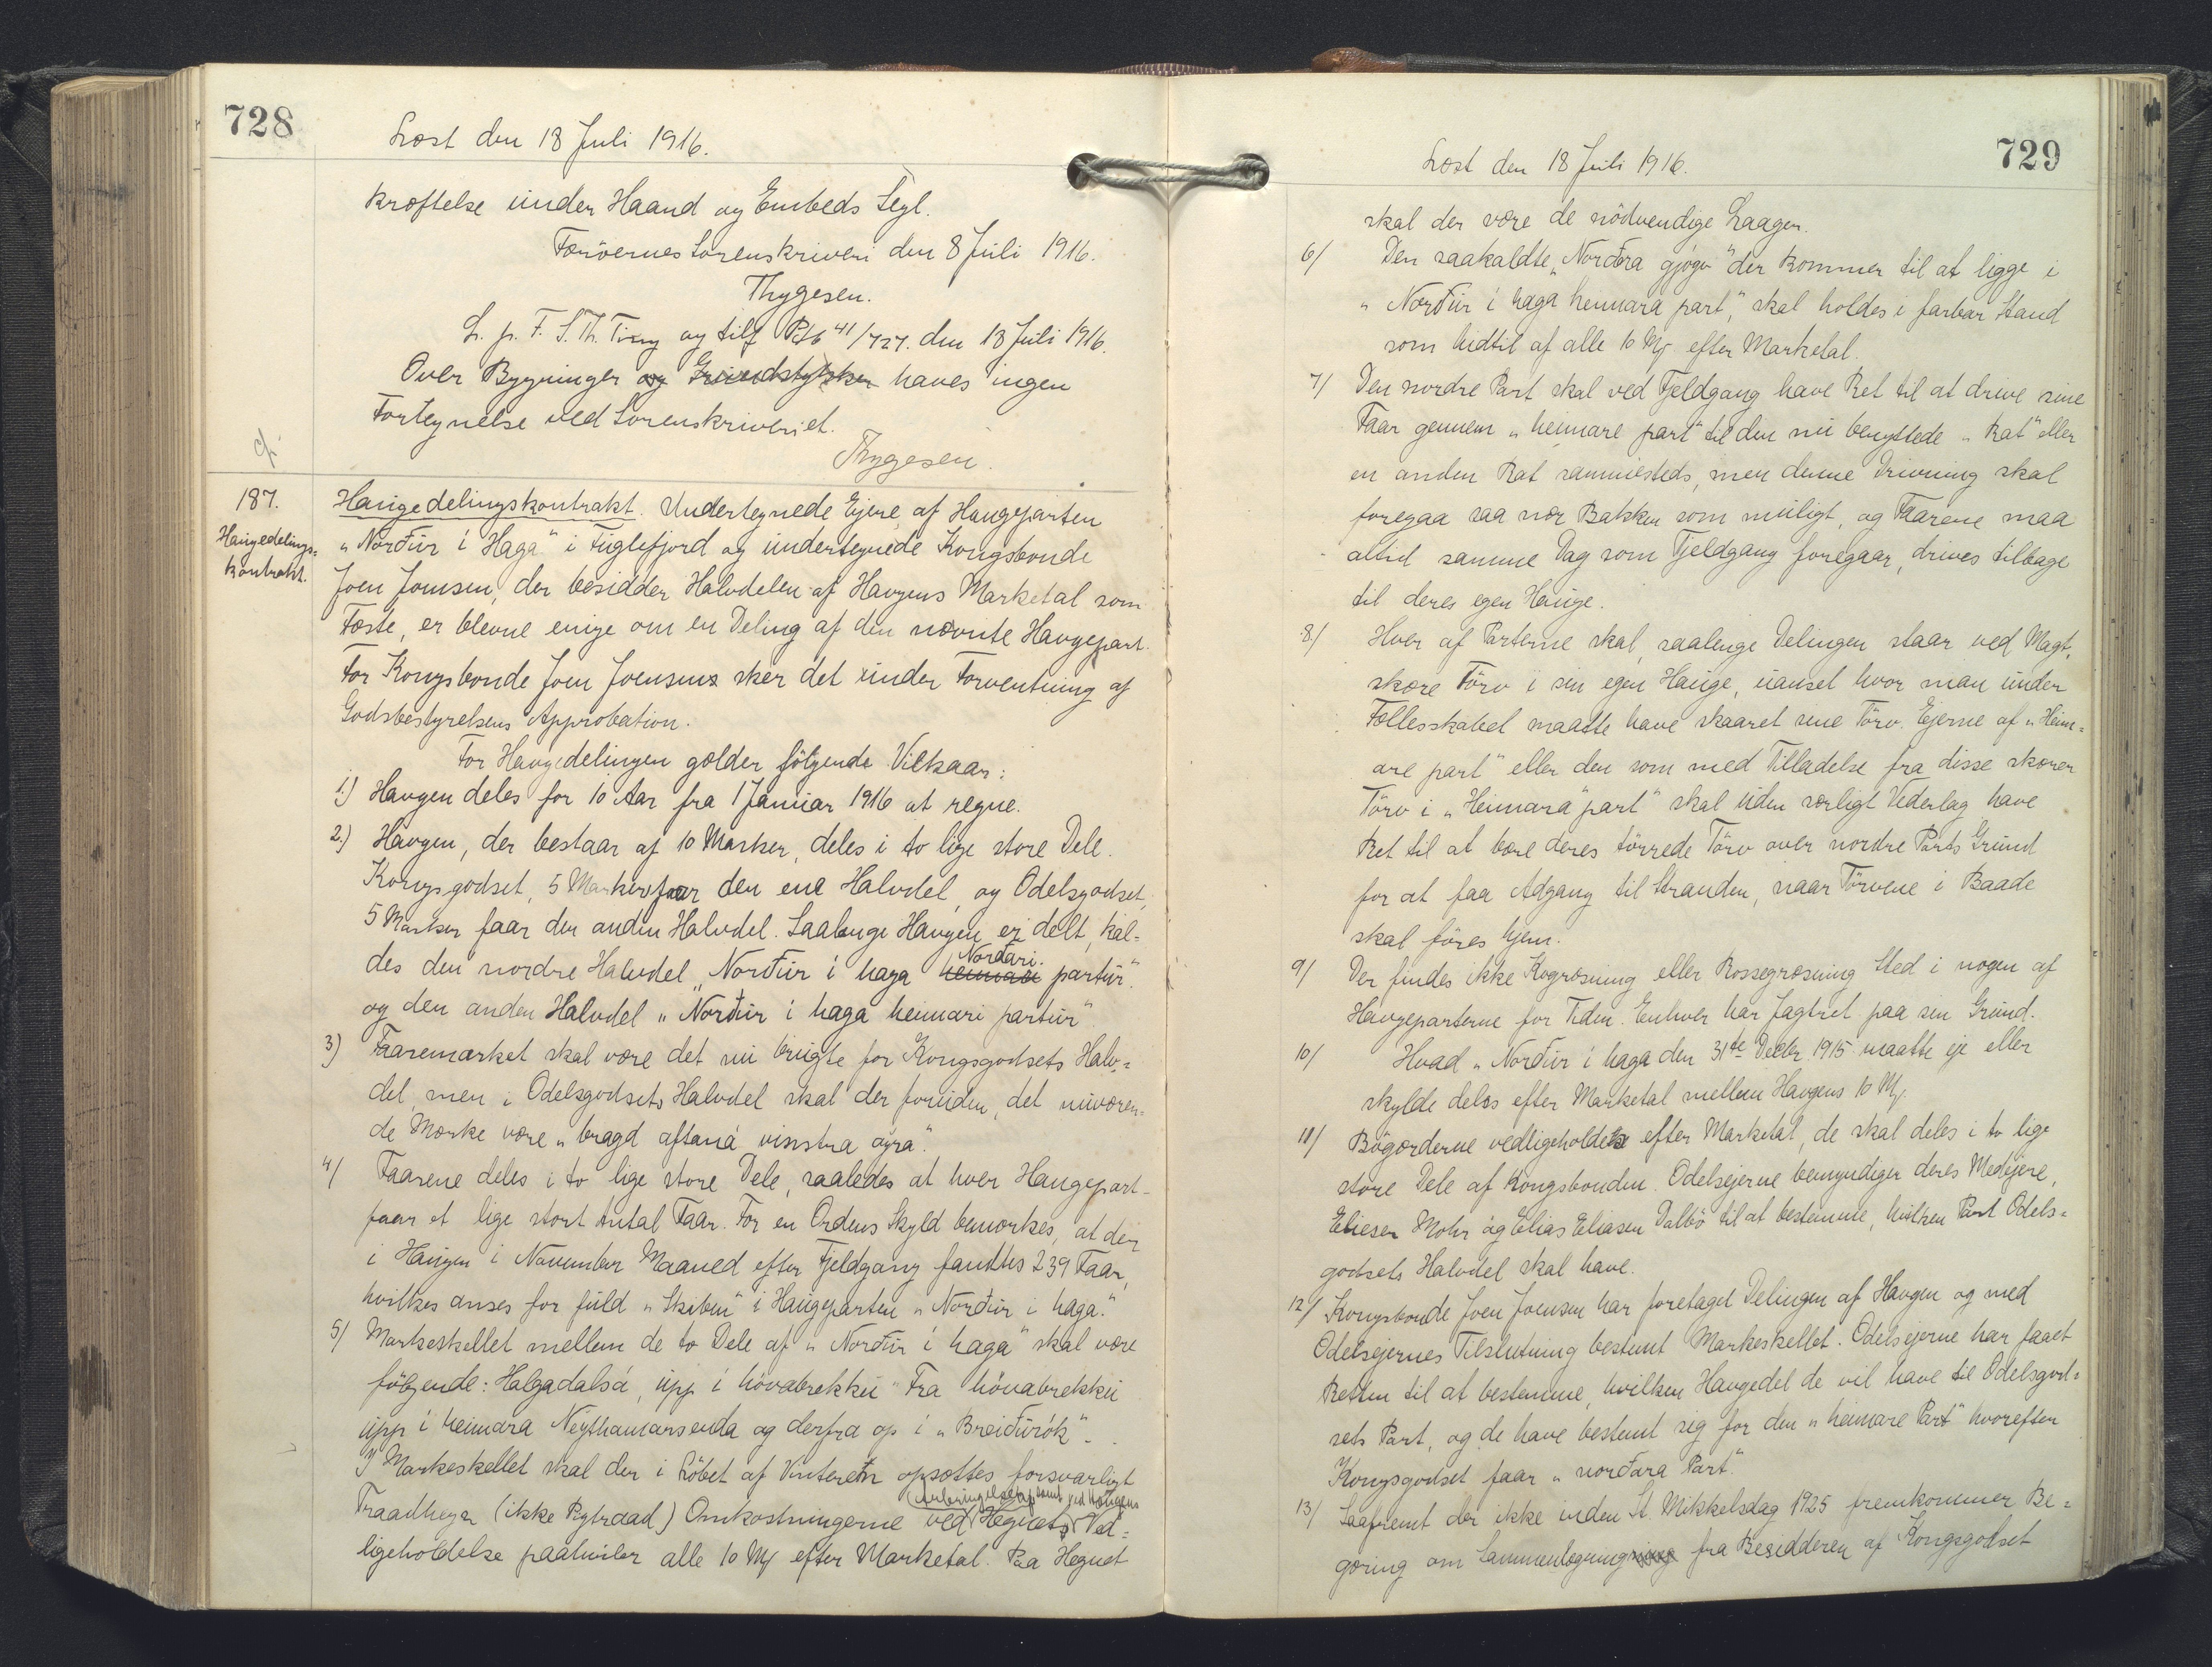 728
Læst den 18 Juli 1916.
kræftelse under Haand og Embeds Segl.
Færøernes Sorenskriveri den 8 Juli 1916.
Thygesen.
L. p. F. S. Th. Ting og tilf Ptb 41/727. den 18 Juli 1916.
Over Bygninger og Grundstykker haves ingen
Fortegnelse ved Sorenskriveriet.
Thygesen.
187.
Haugedelings=
kontrakt.
Haugedelingskontrakt. Undertegnede Ejere af Haugeparten
"Norður í Haga" i Fuglefjord og undertegnede Kongsbonde
Joen Joensen, der besidder Halvdelen af Havgens Marketal som
Fæste, er blevne enige om en Deling af den nævnte Havgepart.
For Kongsbonde Joen Joensens sker det under Forventning af
Godsbestyrelsens Approbation.
For Havgedelingen gælder følgende Vilkaar:
1.) Havgen deles for 10 Aar fra 1 Januar 1916 at regne.
2.) Havgen, der bestaar af 10 Marker, deles i to lige store Dele.
Kongsgodset, 5 Marker faar den ene Halvdel, og Odelsgodset,
5 Marker faar den anden Halvdel. Saalenge Havgen er delt, kal=
des den nordre Halvdel "Norður í haga heimari Norðari. partur".
og den anden Halvdel "Norður í haga heimari partur".
3) Faaremærket skal være det nu brugte for Kongsgodsets Halv=
del, men i Odelsgodsets Halvdel skal der foruden det nuværen=
de Mærke være "bragd aftaná vinstra oyra".
4/ Faarene deles i to lige store Dele, saaledes at hver Haugepart
faar et lige stort Antal Faar. For en Ordens Skyld bemærkes, at der
i Haugen i November Maaned efter Fjeldgang fandtes 239 Faar,
hvilkes anses for fuld "Skipan" i Haugeparten "Norður í haga".
5/ Markeskellet mellem de to Dele af "Norður í haga" skal være
følgende: Halgadalsá, upp í hövabrekku" Fra hövabrekku
upp í heimara Neythamarsenda og derfra op i "Breiðurók".
I Markeskellet skal der i Løbet af Vinteren opsættes forsvarligt
Traadhegn (ikke Pytraad) Omkostningerne ved Hegnets Ved=
ligeholdelse paahviler alle 10 Mf efter Marketal. Paa Hegnet
729
Læst den 18 Juli 1916.
skal der være de nödvendige Laager.
6/ Den saakaldte "Norðara gjógv" der kommer til at ligge i
"Norður í haga heimara part", skal holdes i farbar Stand
som hidtil af alle 10 Mf efter Marketal.
7/ Den nordre Part skal ved Fjeldgang have Ret til at drive sine
Faar gennem "heimare part" til den nu benyttede "Rat" eller
en anden Rat sammesteds, men denne Drivning skal
foregaa saa nær Bakken som muligt, og Faarene maa
altid samme Dag som Fjeldgang foregaar, drives tilbage
til deres egen Hauge.
8/ Hver af Parterne skal, saalenge Delingen staar ved Magt,
skære Törv i sin egen Hauge, uanset hvor man under
Fællesskabet maatte have skaaret sine Törv. Ejerne af "Heim=
are part" eller den som med Tilladelse fra disse skærer
Törv i "Heimara part" skal uden særligt Vederlag have
Ret til at bære deres törrede Törv over nordre Parts Grund
for at faa Adgang til Stranden, naar Törvene i Baade
skal föres hjem.
9/ Der findes ikke Kogræsning eller Rossegræsning Sted i nogen af
Havgeparterne for Tiden. Enhver har Jagtret paa sin Grund.
10/ Hvad "Norður í haga den 31te Decbr 1915 maatte eje eller
skylde deles efter Marketal mellem Havgens 10 Mf.
11/ Bögærderne vedligeholdes efter Marketal, de skal deles i to lige
store Dele af Kongsbonden. Odelsejerne bemyndiger deres Medejere,
Eliesen Mohr og Elias Eliasen Dalbö til at bestemme, hvilken Part Odels=
godsets Halvdel skal have.
12/ Kongsbonde Joen Joensen har foretaget Delingen af Havgen og med
Odelsejernes Tilslutning bestemt Markeskellet. Odelsejerne har faaet
Retten til at bestemme, hvilken Havgedel de vil have til Odelsgod=
sets Part, og de have bestemt sig for den "heimare Part" hvorefter
Kongsgodset faar "norðara Part".
13/ Saafremt der ikke inden St. Mikkelsdag 1925 fremkommer Be=
gæring om Sammenlægning fra Besidderen af Kongsgodset